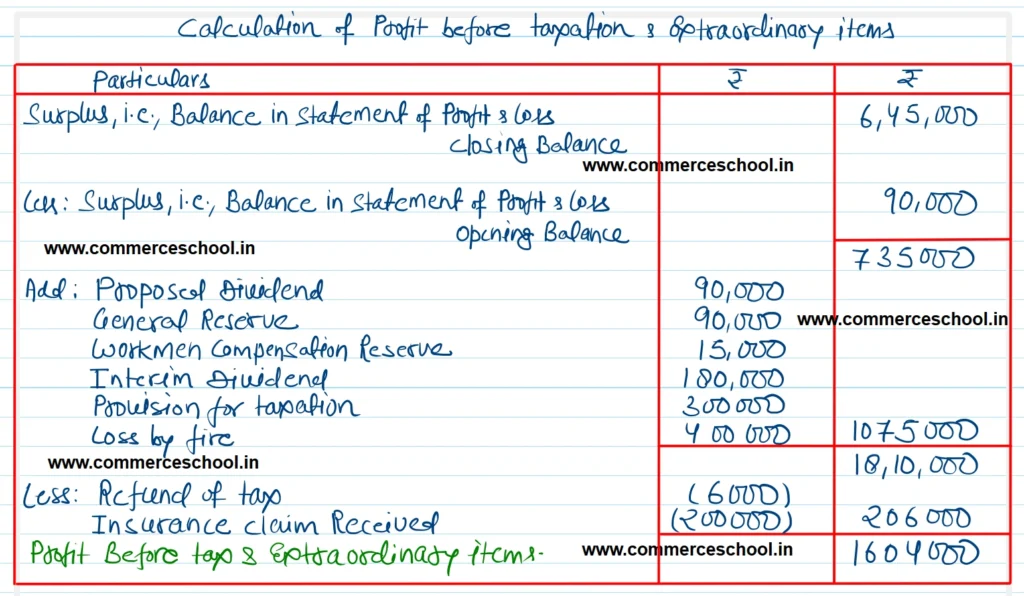 Calculation of Profit before taxation & Extraordinary items
Particulars ₹ ₹
Surplus, i.e., Balance in Statement of Profit & Loss 6,45,000
Closing Balance
www.commerceschool.in
Less: Surplus, i.e., Balance in Statement of Profit & Loss 90,000
Opening Balance
www.commerceschool.in
735000
Add: Proposed Dividend 90,000
General Reserve 90,000 www.commerceschool.in
Workmen Compensation Reserve 15,000
Interim Dividend 180,000
Provision for taxation 300000
Loss by fire 400000 1075000
www.commerceschool.in
18,10,000
Less: Refund of tax (6000)
Insurance claim Received (200000) 206000
Profit Before tax & Extraordinary items. www.commerceschool.in 1604000